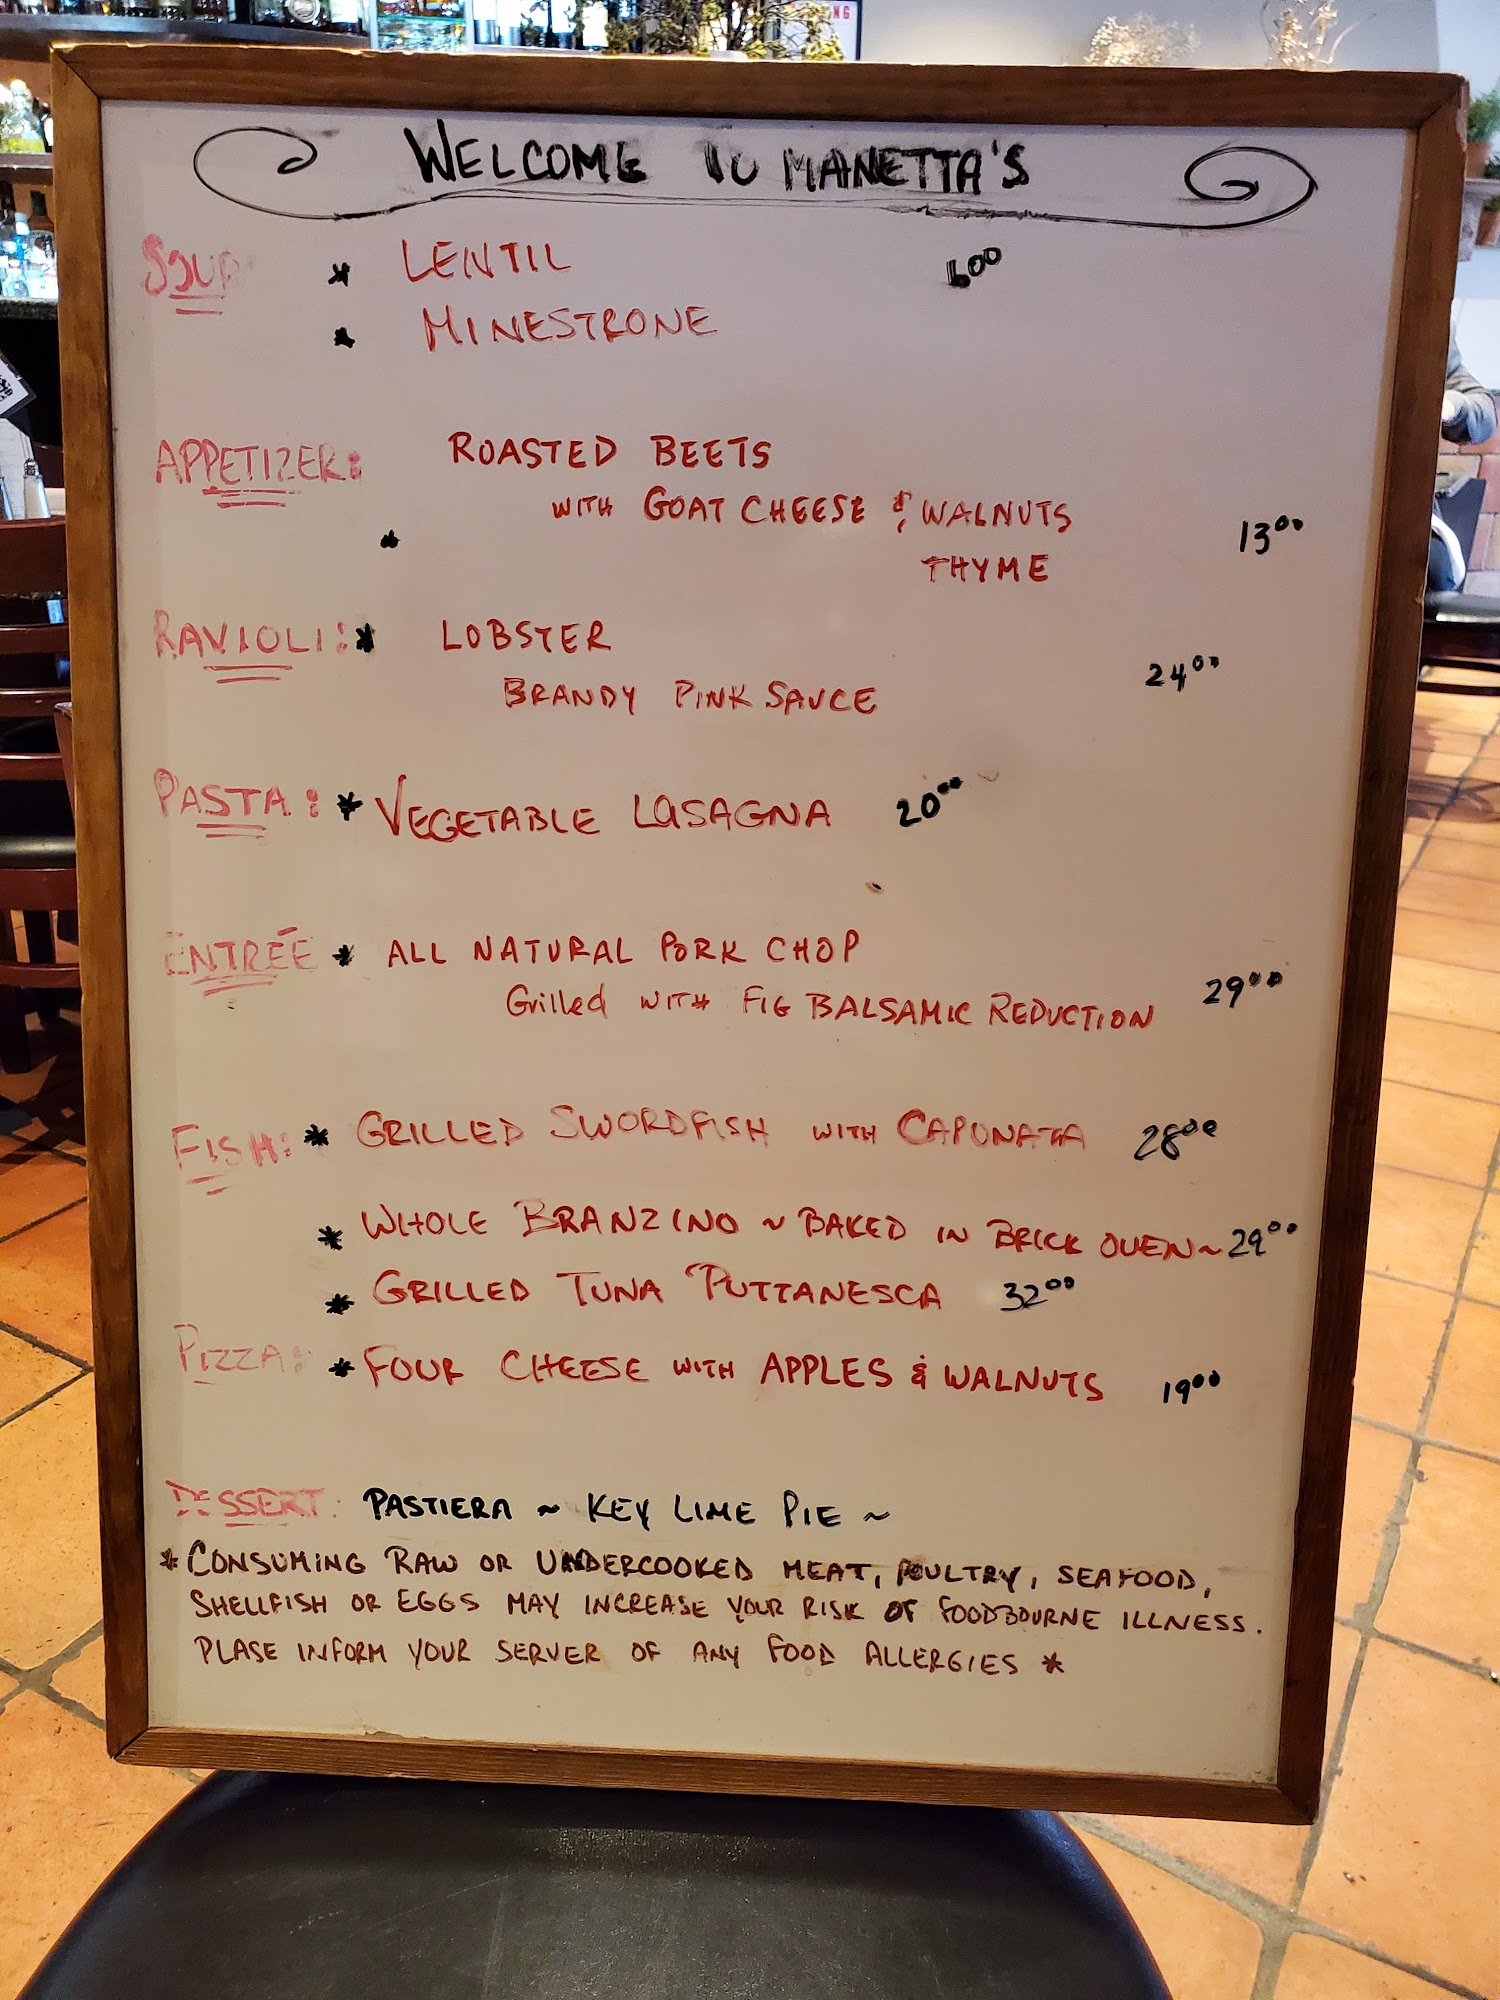 WELCOME TO MANETTA'S
SOUP * LENTIL 6.00
* MINESTRONE
APPETIZER: ROASTED BEETS
WITH GOAT CHEESE & WALNUTS 13.00
THYME
RAVIOLI: * LOBSTER
BRANDY PINK SAUCE 24.00
PASTA: * VEGETABLE LASAGNA 20.00
ENTRÉE * ALL NATURAL PORK CHOP
Grilled WITH FIG BALSAMIC REDUCTION 29.00
FISH: * GRILLED SWORDFISH WITH CAPONATA 28.00
* WHOLE BRANZINO ~ BAKED IN BRICK OVEN ~ 29.00
* GRILLED TUNA PUTTANESCA 32.00
PIZZA: * FOUR CHEESE WITH APPLES & WALNUTS 19.00
DESSERT: PASTIERA ~ KEY LIME PIE ~
* CONSUMING RAW OR UNDERCOOKED MEAT, POULTRY, SEAFOOD,
SHELLFISH OR EGGS MAY INCREASE YOUR RISK OF FOODBOURNE ILLNESS.
PLASE INFORM YOUR SERVER OF ANY FOOD ALLERGIES *